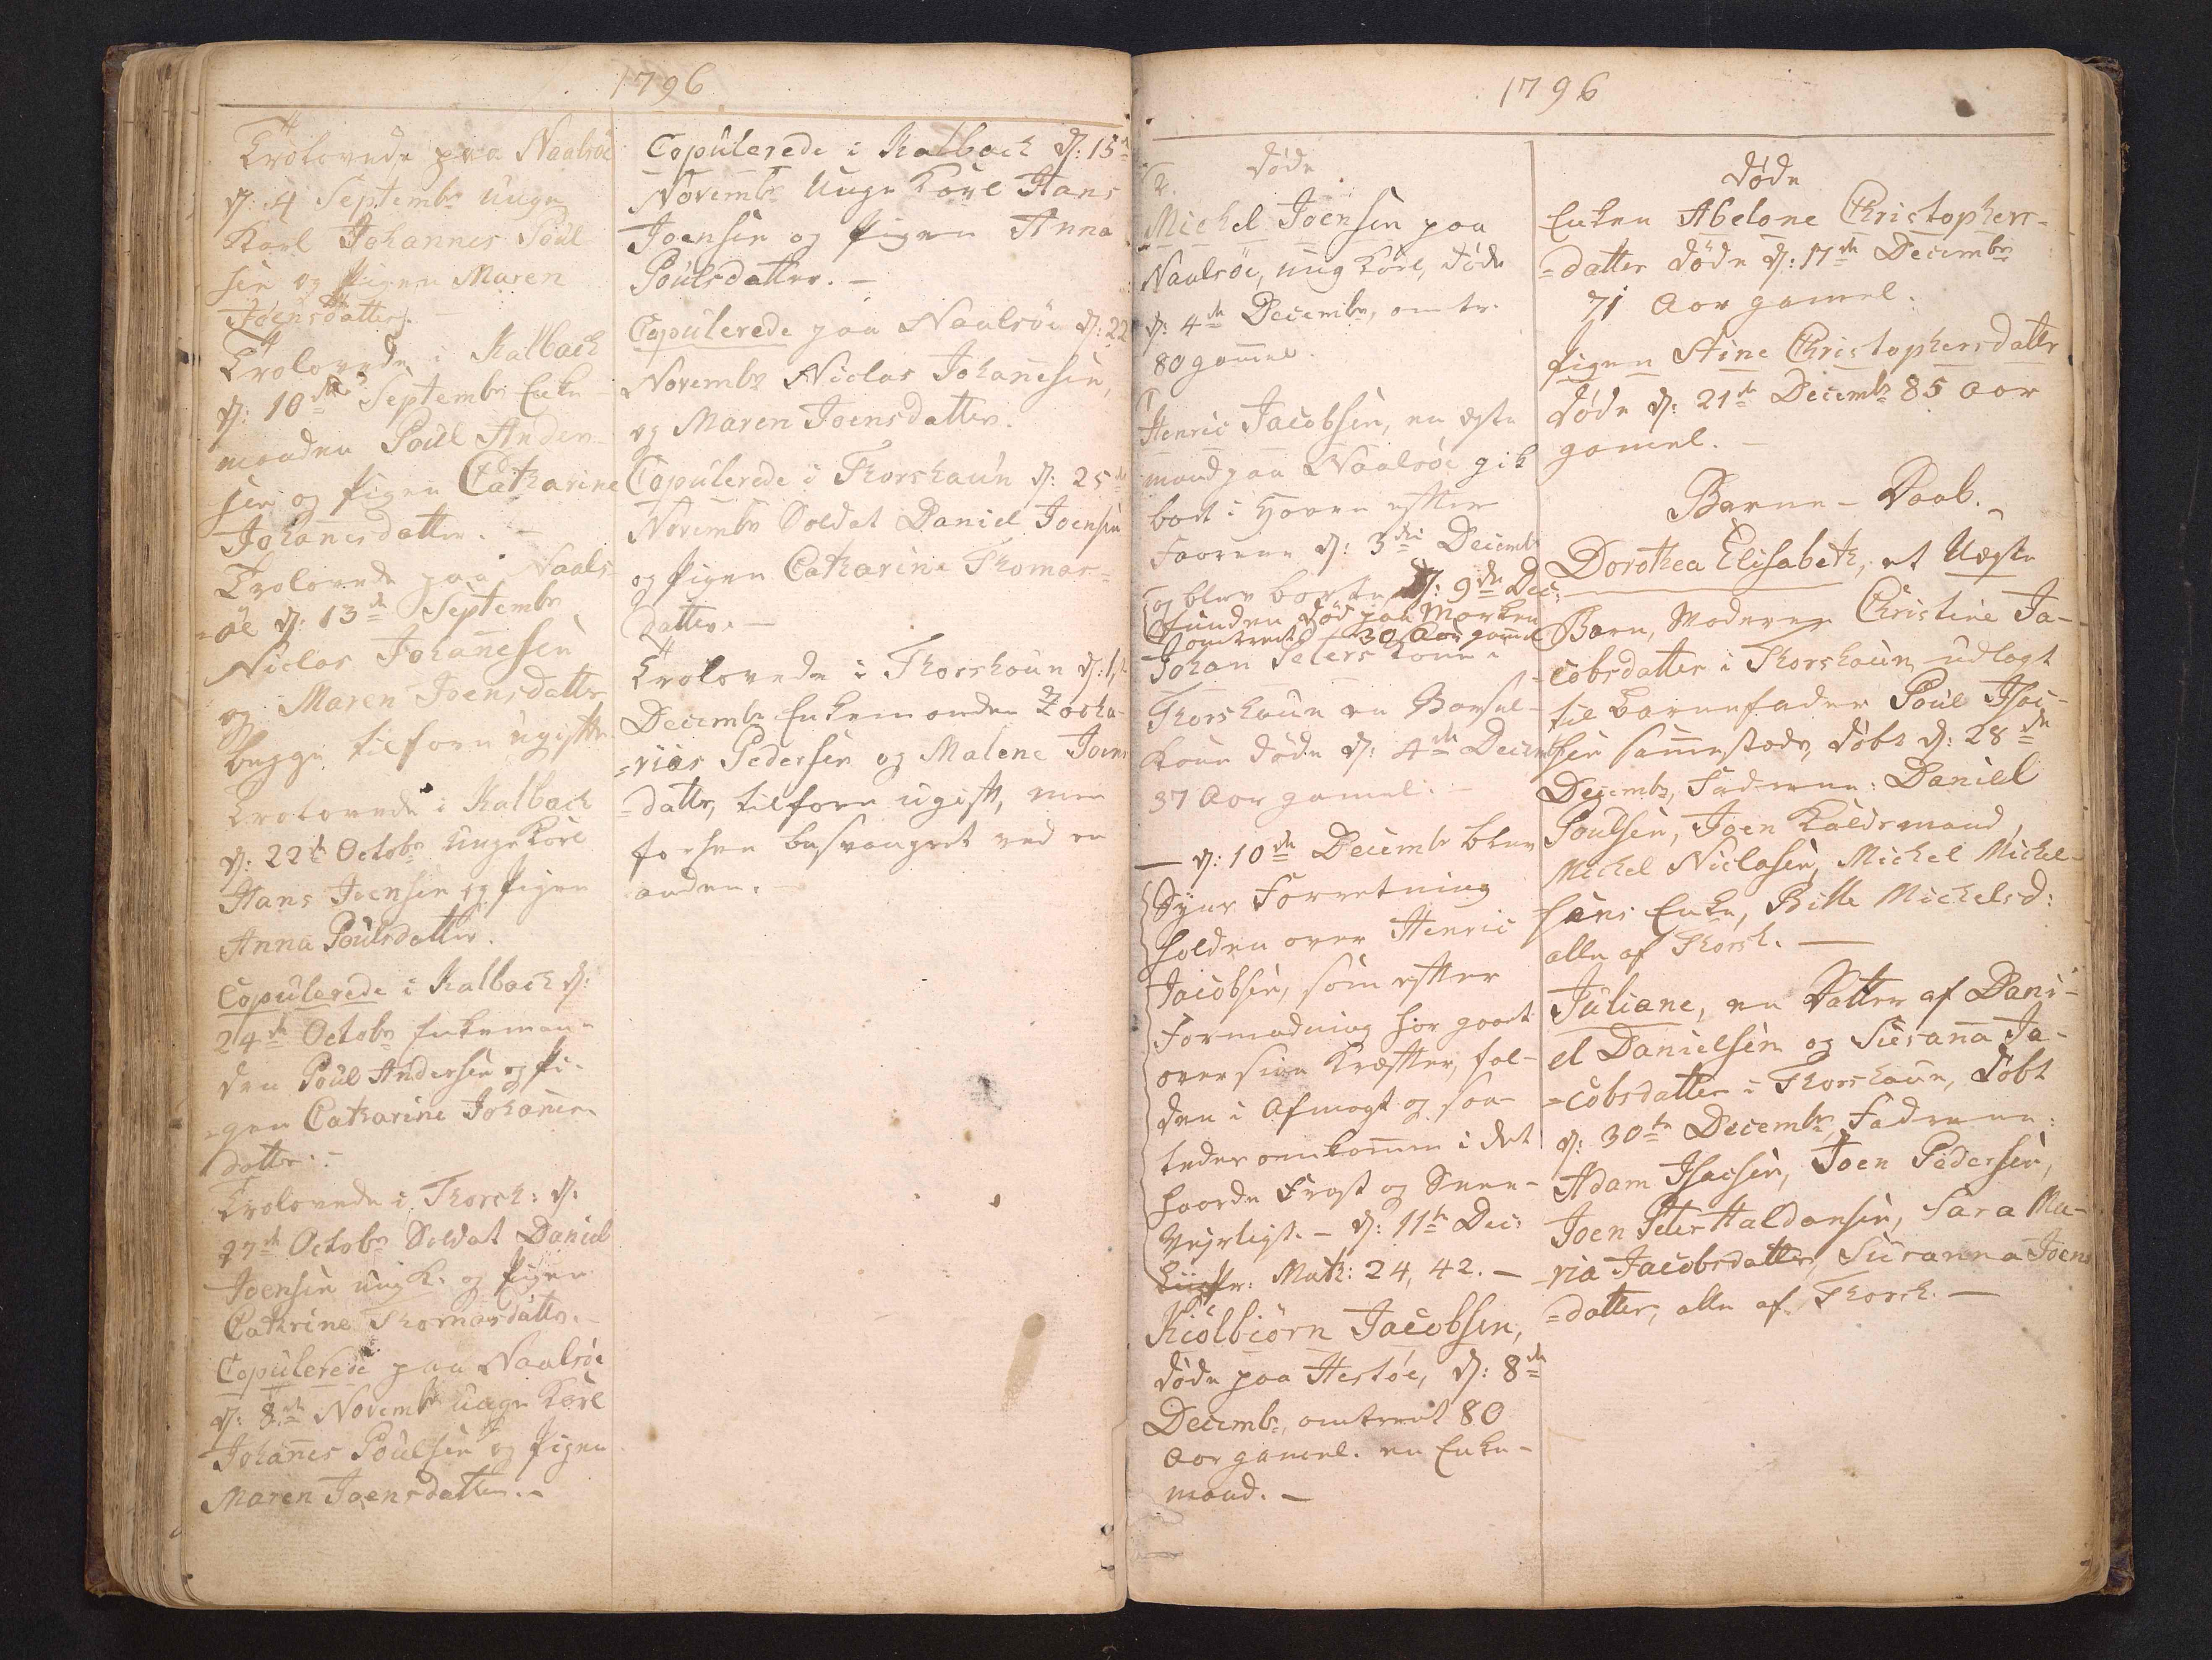 1796
Trolovede paa Naalsöe
d: 4 Septembr unge
Karl Johannes Poul-
sen og Pigen Maren
Joensdatter. -
Trolovede i Kalbach
d: 10de Septembr Enke-
manden Poul Ander-
sen og Pigen Catharine
Johanesdatter. -
Trolovede paa Naals-
-öe d: 13de Septembr
Niclas Johannesen
og Maren Joensdatter
begge tilforn ugifte
Trolovede i Kalbach
d: 22de Octobr Unge Karl
Hans Joensen og Pigen
Anna Poulsdatter.
Copulerede i Kalbach d:
24de Octobr Enkeman-
den Poul Andersen og Pi-
-gen Catharine Johanes-
datter. -
Trolovede i Thorsh: d:
27de Octobr Soldat Daniel
Joensen ung K. og Pigen
Cathrine Thomasdatter. -
Copulerede paa Naalsöe
d: 8de Novembr unge Karl
Johanes Poulsen og Pigen
Maren Joensdatter. -
Copulerede i Kalbach d: 15de
Novembr Unge Karl Hans
Joensen og Pigen Anna
Poulsdatter. -
Copulerede paa Naalsöe d: 22
Novembr Niclas Johanesen,
og Maren Joensdatter.
Copulerede i Thorshaun d: 25de
Novembr Soldat Daniel Joensen
og Pigen Catharine Thomas=
datter. -
Trolovede i Thorshaun d: 1ste
Decembr Enkemanden Zacha-
=rias Pedersen og Malene Joens
=datter, tilforn ugift, men
forhen besvangret ved en
anden. -
1796
døde
2.
Michel Joensen paa
Naalsöe, ung Karl, døde
d: 4de Decembr, omtr.
80 gammel.
Henric Jacobsen, en gifte
mand paa Naalsöe gik
bort i Haven efter
Faarene d: 3die Decembr
og blev borte d: 9de Dec:
funden død paa Marken
omtrent 30 Aar gammel
Johan Peters Kone i
Thorshaun en Barsel-
kone døde d: 4de Decembr
37 Aar gamel. -
- d: 10de Decembr blev
Syns Forretning
holden over Henric
Jacobsen, som efter
Formodning har gaaet
over sine Kræfter, fal-
den i Afmagt og saa-
ledes omkommen i det
haarde Frost og Snee-
Vejrligt. - d: 11te Dec:
Math: 24, 42. -
Kiölbiörn Jacobsen,
døde paa Hestöe, d: 8de
Decembr, omtrent 80
Aar gamel. en Enke-
mand. -
døde
Enken Abelone Christophers-
=datter døde d: 17de Decembr
71 Aar gamel.
Pigen Stine Christophersdatter
døde d: 21de Decembr 85 Aar
gamel. -
Barne-Daab.
Dorothea Elisabeth, et Uægte
Barn, Moderen Christine Ja-
-cobsdatter i Thorshaun udlagt
til Barnefader Poul Isac-
sen sammesteds, døbt d: 28de
Decembr, Fadderne: Daniel
Poulsen, Joen Kaldsmand,
Michel Niclasen, Michel Michel-
sens Enke, Bille Michelsd:
alle af Thorsh. -
Juliane, en Datter af Dani-
el Danielsen og Susanna Ja-
=cobsdatter i Thorshaun, døbt
d: 30te Decembr, Fadderne:
Adam Isacsen, Joen Pedersen,
Joen Peter Haldansen, Sara Ma-
-ria Jacobsdatter, Susanna Joens
=datter, alle af Thorsh. -